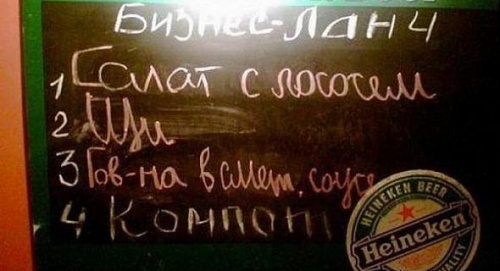 Бизнес-Ланч
1 Салат с лососем
2 Щи
3 Гов-на в смет. соусе
4 Компот
HEINEKEN BEER
Heineken
QUALITY